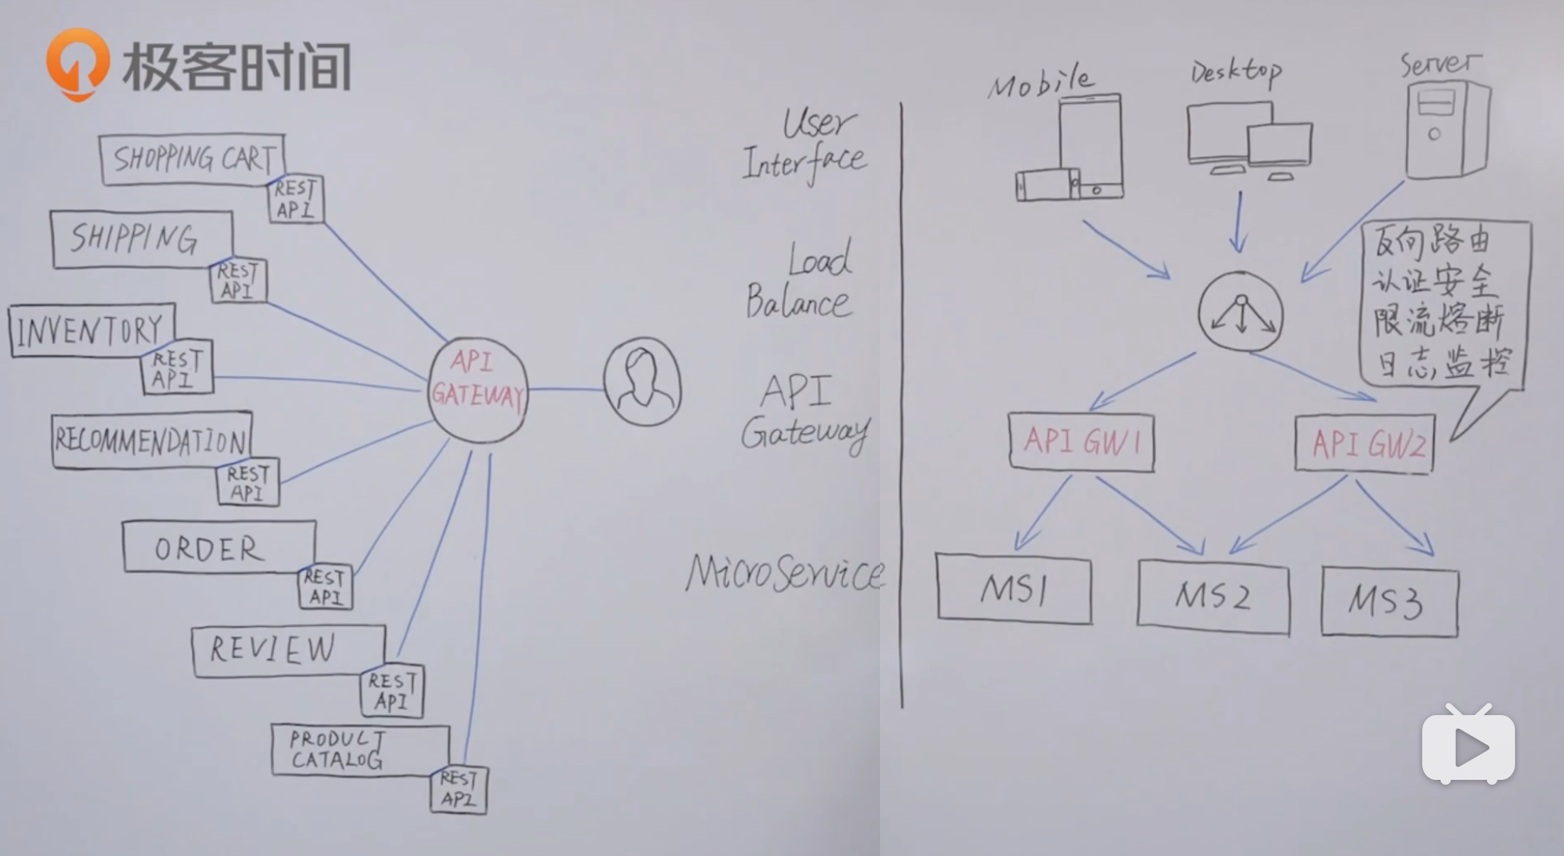 极客时间
SHOPPING CART
REST
API
SHIPPING
REST
API
INVENTORY
REST
API
RECOMMENDATION
REST
API
ORDER
REST
API
REVIEW
REST
API
PRODUCT
CATALOG
REST
API
API
GATEWAY
User
Interface
Load
Balance
API
Gateway
MicroService
Mobile
Desktop
Server
反向路由
认证安全
限流熔断
日志,监控
API GW1
API GW2
MS1
MS2
MS3